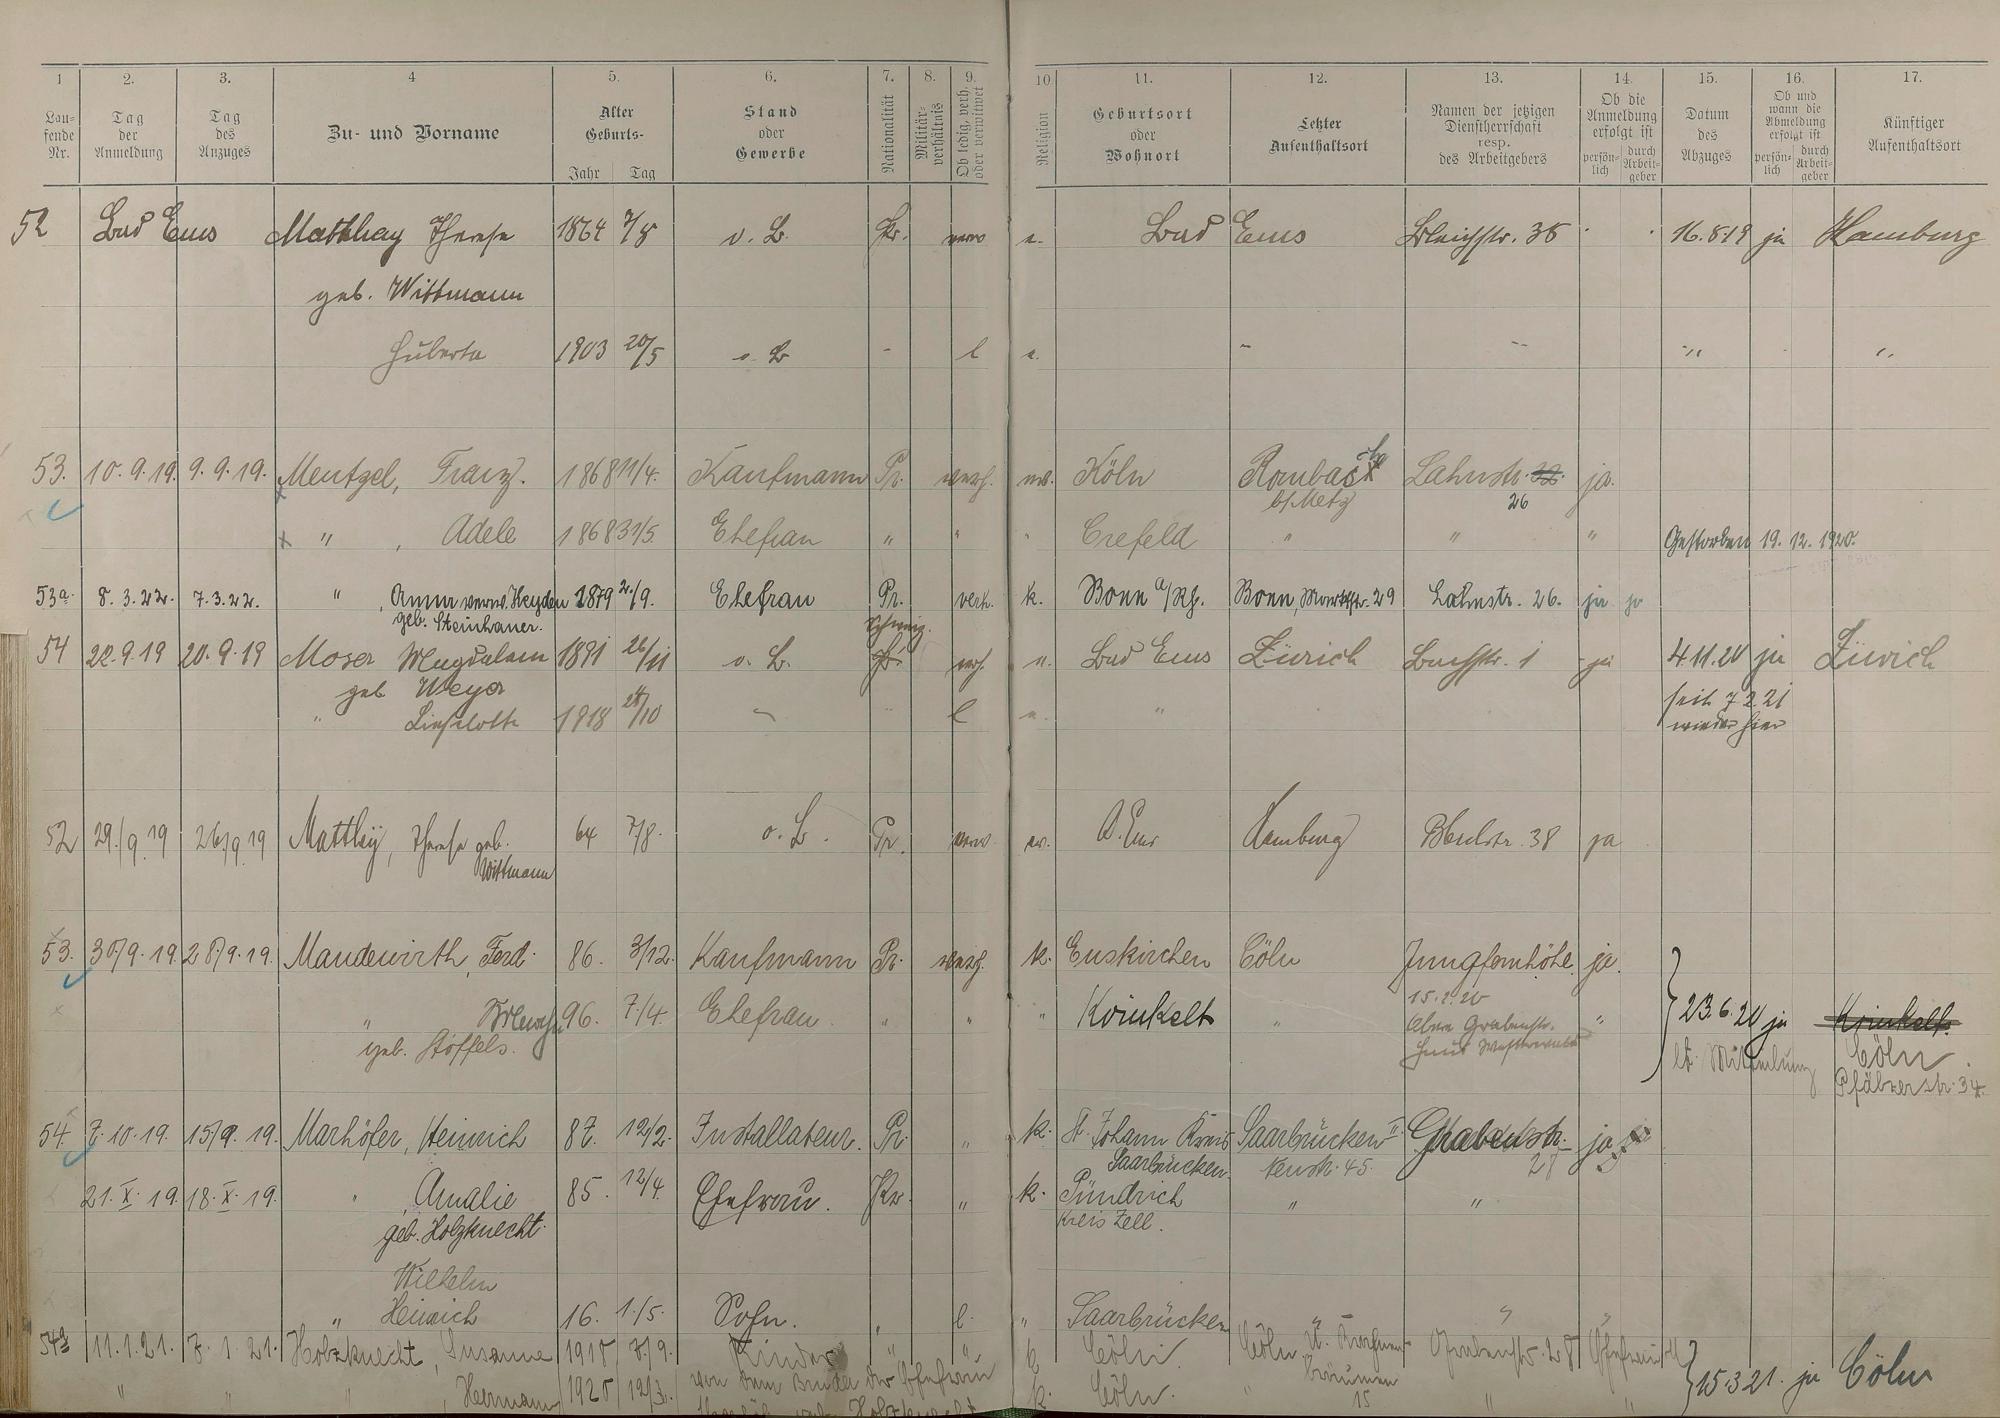 1 2. 3. 4 5. 6. 7. 8. 9. 10 11. 12. 13. 14. 15. 16. 17.
Lau-
fende
Nr.
Tag
der
Anmeldung
Tag
des
Anzuges
Zu- und Vorname
Alter
Geburts-
Jahr Tag
Stand
oder
Gewerbe
Nationalität
Militär-
verhältnis
Ob ledig, verh.
oder verwitwet
Religion
Geburtsort
oder
Wohnort
Letzter
Aufenthaltsort
Namen der jetzigen
Dienstherrschaft
resp.
des Arbeitgebers
Ob die
Anmeldung
erfolgt ist
persön-
lich
durch
Arbeit-
geber
Datum
des
Abzuges
Ob und
wann die
Abmeldung
erfolgt ist
persön-
lich
durch
Arbeit-
geber
Künftiger
Aufenthaltsort
52 Bad Ems Matthay Therese 1864 7/8 o. B. Pr. verw e. Bad Ems Bleichstr. 38 16.8.19 ja Hamburg
geb. Wittmann
Huberta 1903 20/5 o. B - l e. " "
53. 10.9.19. 9.9.19. Mentzel, Franz. 1868 11/4. Kaufmann Pr. verh. ev. Köln Rombach Lahnstr. 26 ja.
b/Metz
" , Adele 1868 31/5. Ehefrau " " " Crefeld " " " Gestorben 19.12.1920.
53a. 8.3.22. 7.3.22. " , Anna verw. Heyden 1879 2./9. Ehefrau Pr. verh. k. Bonn a/Rh. Bonn, Marktstr. 29 Lahnstr. 26. ja ja
geb. Steinhauer.
Schweiz.
54 22.9.19 20.9.19 Moser Magdalena 1891 26/11 o. B. Pr. verh. e. Bad Ems Zürich Bachstr. 1 ja 4.11.20 ja Zürich
geb Meyer
" Lieselotte 1918 28/10 l e. " seit 7 2 21
wieder hier
52 29./9.19 26/9 19 Matthäy, Therese geb. 64 7/8. o. B. Pr. verw. ev. B. Ems Hamburg 38 ja
Wittmann
53. 30/9.19. 28/9.19. Mandewirth, Ferd. 86. 3/12. Kaufmann Pr. verh. k. Euskirchen Cöln Jungfernhöhe ja.
" 96. 7./4. Ehefrau. " " " Krinkelt " 15.2.20 " 23.6.20 ja Krinkelt.
geb. Stoffels. Obere Grabenstr.
Haus Westerwald
lt. Mitteilung Cöln
Pfälzerstr. 34.
54. 7.10.19. 15/9.19. Marhöfer, Heinrich 87. 12/2. Installateur. Pr. " k. St. Johann Kreis Saarbrücken Grabenstr. ja
Saarbrücken 45. 28
21.X.19. 18.X.19. " , Amalie 85. 12/4. Ehefrau. Pr. " k. Pündrich " "
geb. Holzknecht. Kreis Zell.
Wilhelm
" Heinrich 16. 1./5. Sohn. " l. " Saarbrücken " "
54a 11.1.21. 7.1.21. Holzknecht, Susanne 1918 8/9. Kinder " " k Cöln. Cöln Grabenstr. 28 Ehefrau
" " " , Hermann 1920 12/3. von dem Bruder der Ehefrau k. Cöln. " 15 " " 15.3.21. ja Cöln
Holzknecht